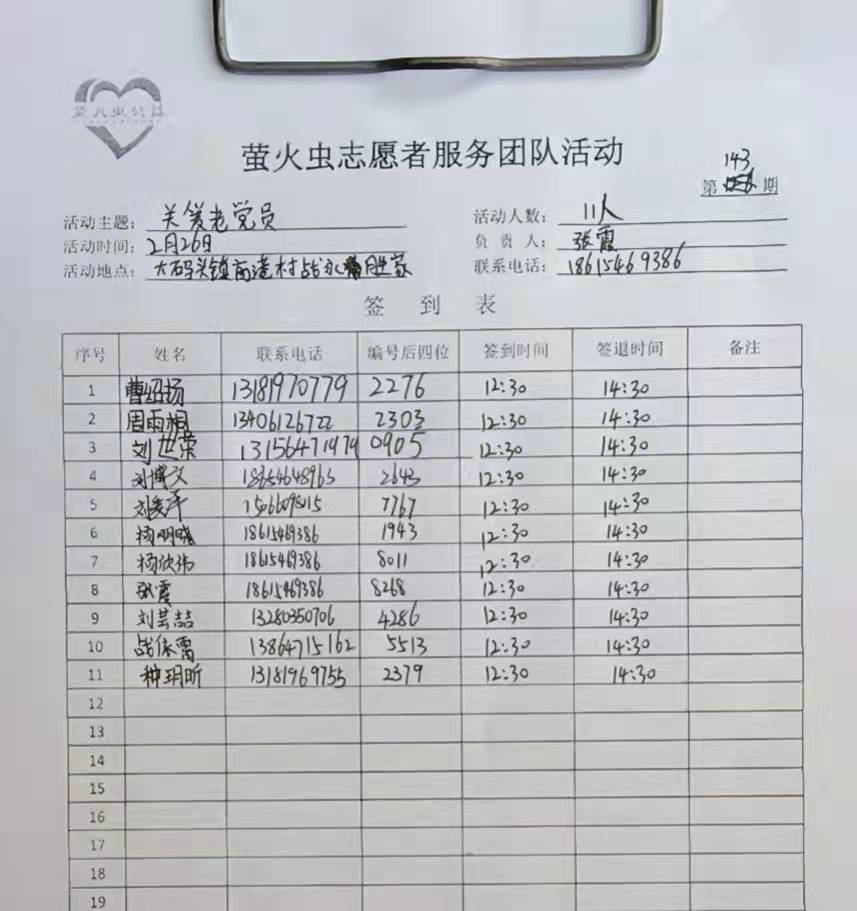 萤火虫公益
萤火虫志愿者服务团队活动
第 143 期
活动主题： 关爱老党员 活动人数： 11人
活动时间： 2月26日 负 责 人： 张霞
活动地点： 大码头镇南港村战永胜家 联系电话： 18615469386
签 到 表
序号 姓名 联系电话 编号后四位 签到时间 签退时间 备注
1 曹绍扬 13181970779 2276 12:30 14:30
2 周雨桐 13406126722 2303 12:30 14:30
3 刘世荣 13156471979 0905 12:30 14:30
4 刘博文 18654648965 2643 12:30 14:30
5 7767 12:30 14:30
6 杨明晓 18615469386 1943 12:30 14:30
7 杨欣伟 18615469386 8011 12:30 14:30
8 张霞 18615469386 8268 12:30 14:30
9 刘芸喆 13280350706 4286 12:30 14:30
10 13864715162 5513 12:30 14:30
11 种玥昕 13181969755 2379 12:30 14:30
12
13
14
15
16
17
18
19